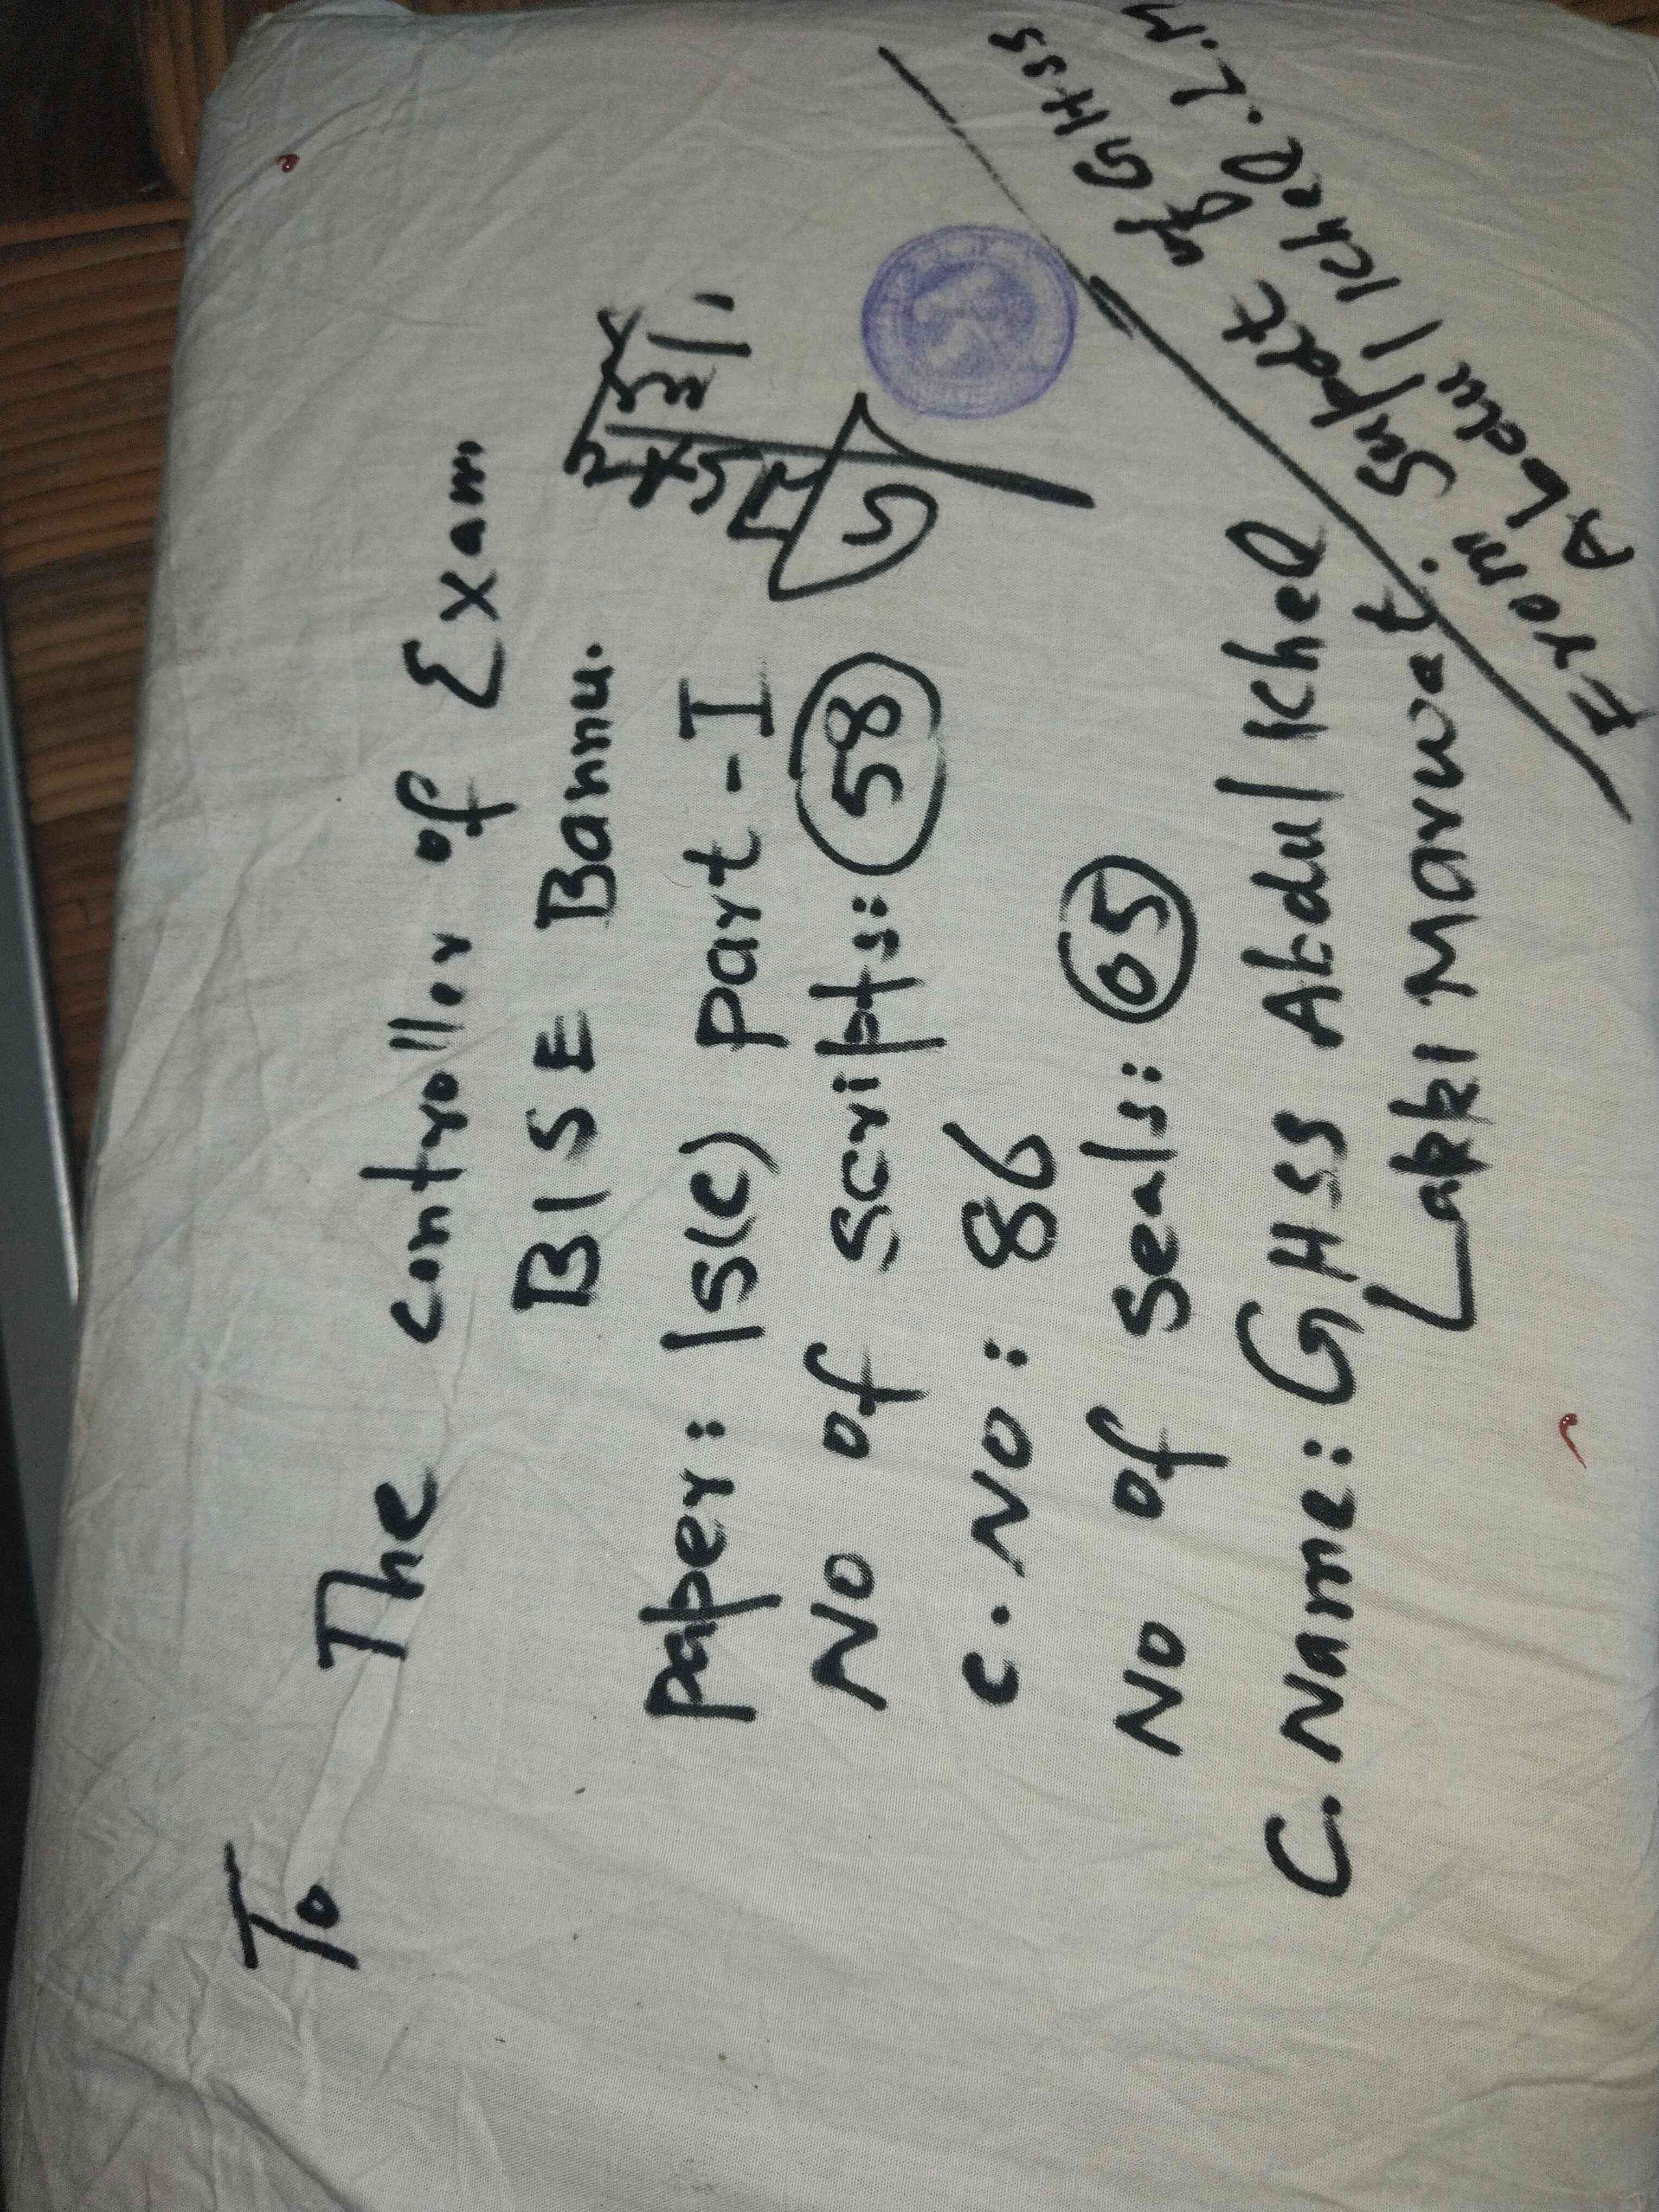 To
The controller of Exam.
BISE Bannu.
Paper: ISC) Part-I
No of scripts: 58
C. No: 86
No of Seals: 05
C. Name: GHSS Abdul Khel
Lakki Marwat.
From Supdt of GHSS
Abdul Khel. L.M